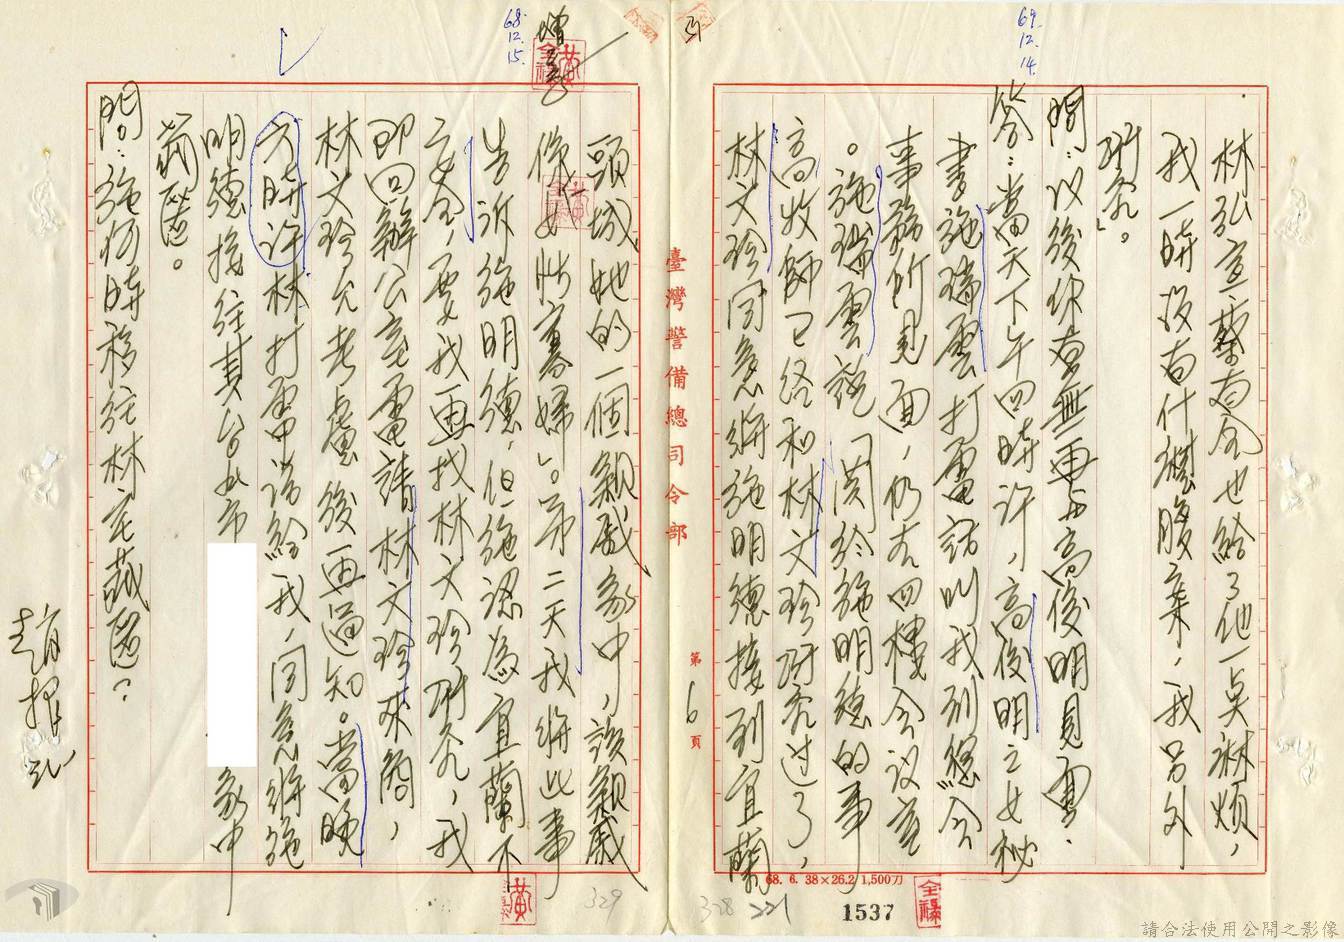 69.
12.
14.
林弘宣蔡有全也給了他一点麻煩，
我一時沒有什麼腹案，我另外
研究」。
問：以後你有無再与高俊明見面？
答：當天下午四時许，高俊明之女秘
書施瑞雲打電話叫我到總会
事務所見面，仍在四樓会议室
。施瑞雲説関於施明德的事
高牧師已经和林文珍研究过了，
林文珍同意將施明德接到宜蘭
臺灣警備總司令部
第6頁
68. 6. 38×26.2 1,500刀
1537
328 221
68.
12.
15.
頭城她的一個親戚家中，該親戚
係女性寡婦」。第二天我將此事
告訴施明德，但施認為宜蘭不
安全，要我再找林文珍研究，我
即回辦公室電請林文珍來商，
林文珍允考慮後再通知。當晚
六時许林打電话給我，同意將施
明德接往其台北市
家中
藏匿。
問：施何時移往林宅藏匿？
趙振弘
329
請合法使用公開之影像